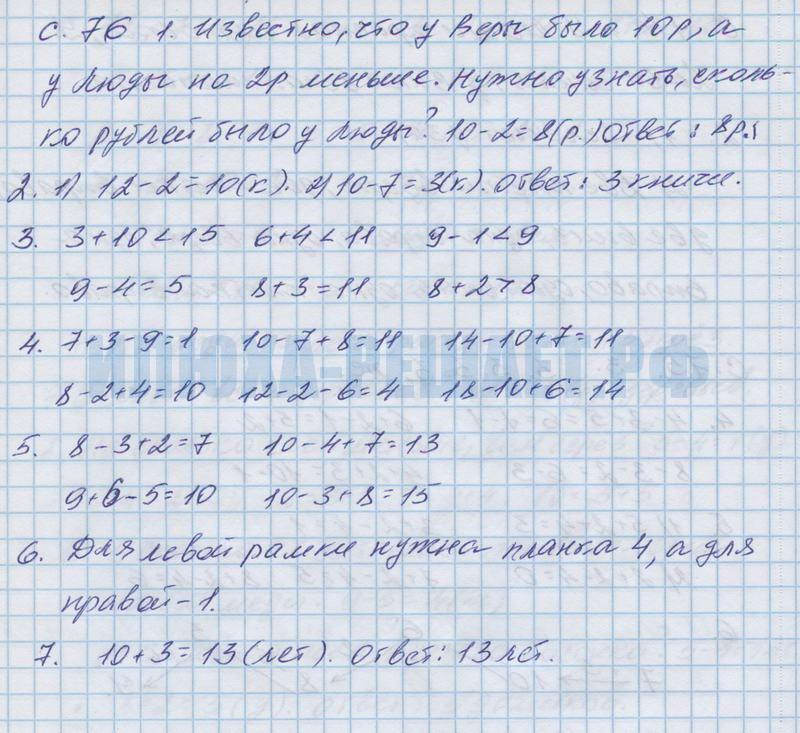 с. 76 1. Известно, что у Веры было 10р, а
у Люды на 2р меньше. Нужно узнать, сколь-
ко рублей было у Люды? 10-2=8(р.) Ответ: 8р.
2. 1) 12-2=10(к). 2) 10-7=3(к). Ответ: 3 книги.
3. 3+10<15 6+4<11 9-1<9
9-4=5 8+3=11 8+2>8
4. 7+3-9=1 10-7+8=11 14-10+7=11
8-2+4=10 12-2-6=4 18-10+6=14
ИЛЮХА-РЕШАЕТ.РФ
5. 8-3+2=7 10-4+7=13
9+6-5=10 10-3+8=15
6. Для левой рамки нужна планка 4, а для
правой-1.
7. 10+3=13(лет). Ответ: 13 лет.